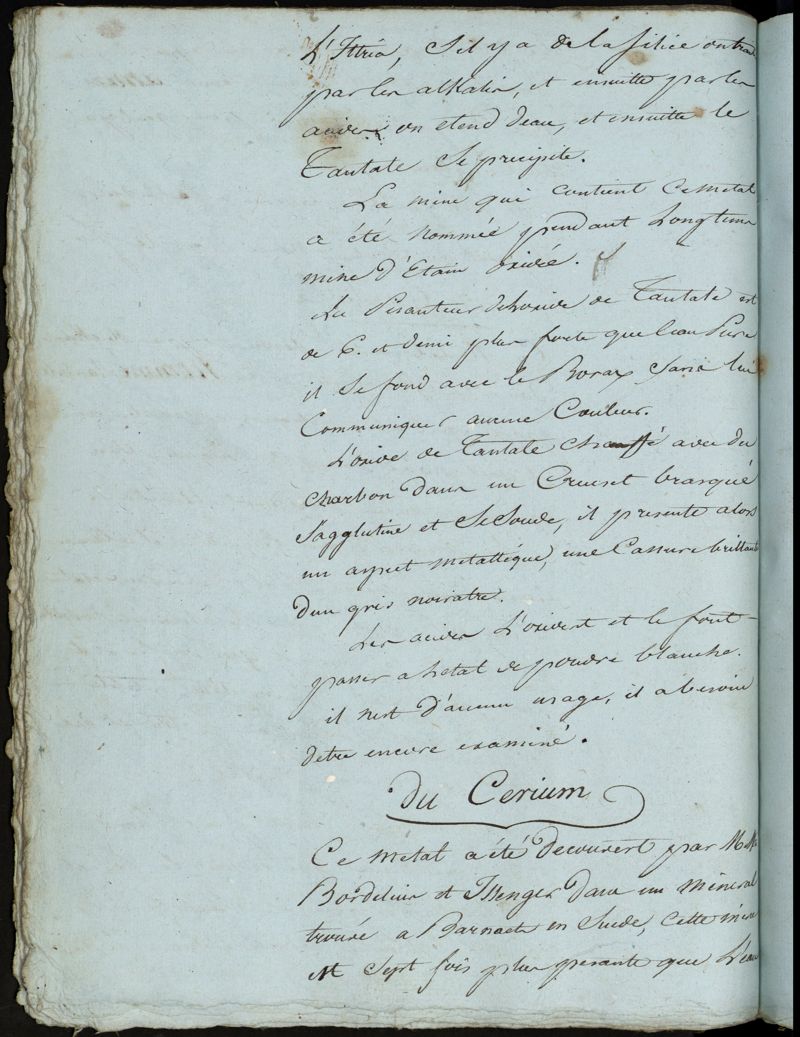 L'Ittria, S'il y a de la silice on trait
par les alkalis, et ensuite par les
acides on etend d'eau, et ensuite le
Tantale Se precipite.
La mine qui contient Ce metal
a été nommée pendant Longtems
mine d'Etain oxidée.
La Pesanteur de Loxide de Tantale est
de 6. et demi plus forte que l'eau Pure
il Se fond avec le Borax Sans lui
Communiquer aucune Couleur.
L'oxide de Tantale chauffé avec du
charbon dans un Creuset brasqué
S'agglutine et Se Soude, il presente alors
un aspect metallique, une Cassure brillante
d'un gris noiratre.
Les acides L'oxident et le font
passer a letat de poudre blanche.
il n'est d'aucun usage, il a besoin
detre encore examiné.
Du Cerium
Ce metal a été decouvert par M. M.
Bordelius et Issenger Dans un mineral
trouvé a Barnaete en Suede, Cette mine
est Sept fois plus pesante que L'eau